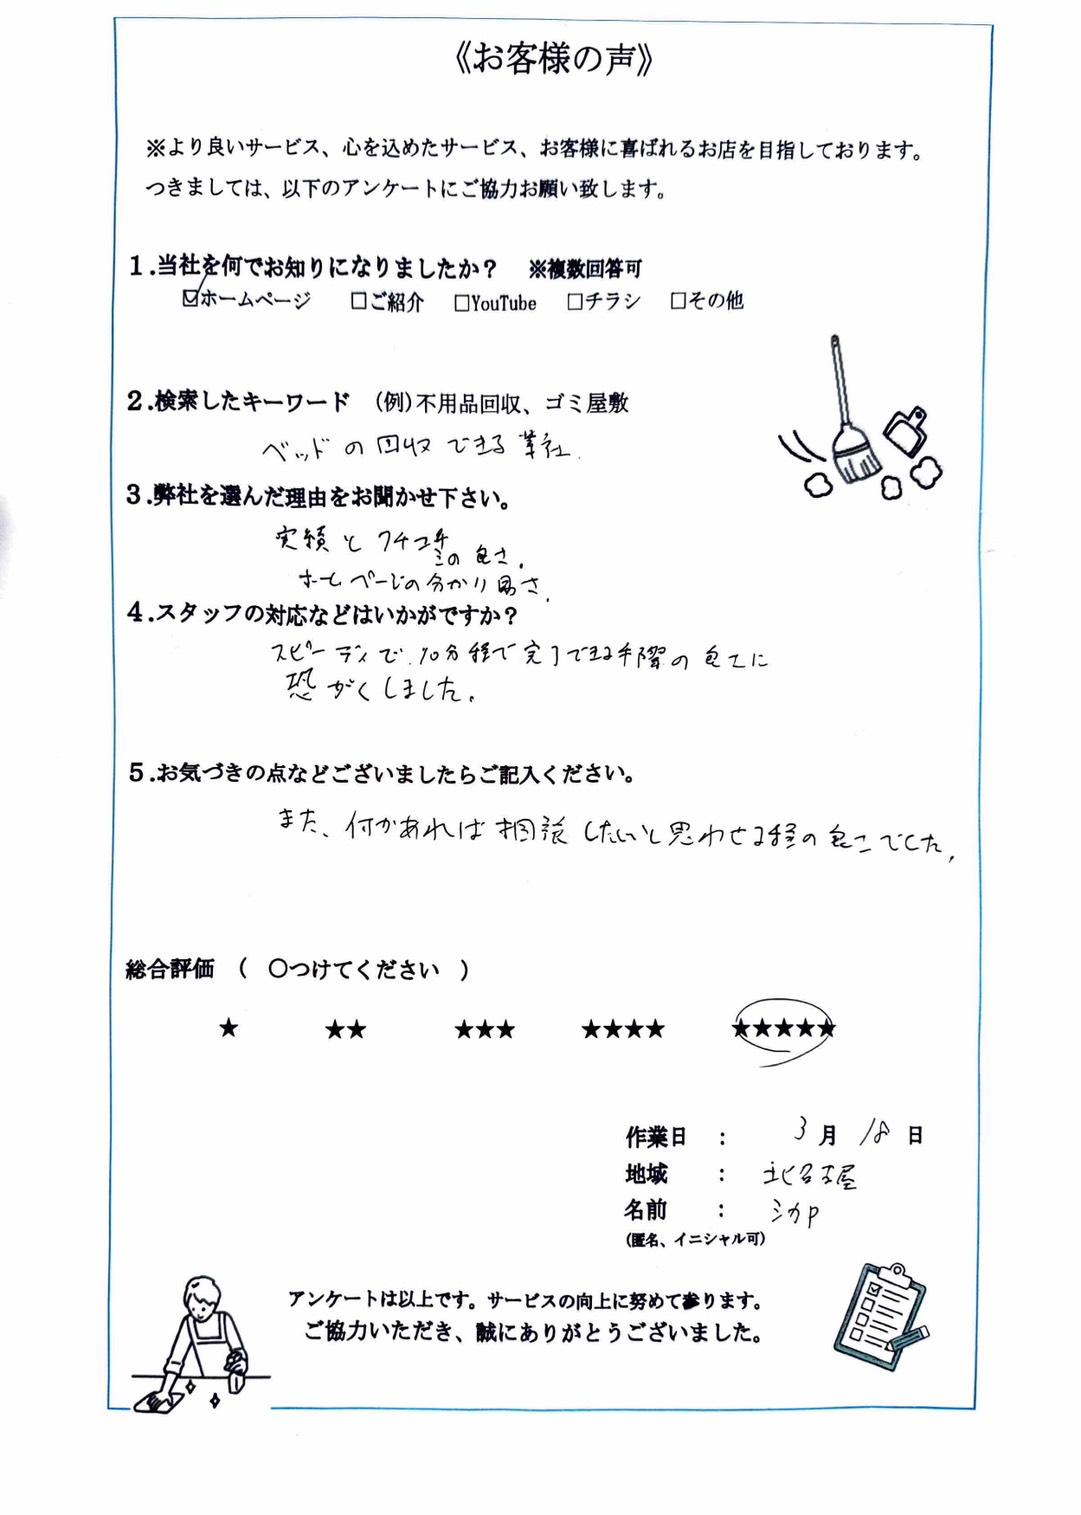 《お客様の声》
※より良いサービス、心を込めたサービス、お客様に喜ばれるお店を目指しております。
つきましては、以下のアンケートにご協力お願い致します。
１.当社を何でお知りになりましたか？ ※複数回答可
☑ホームページ □ご紹介 □YouTube □チラシ □その他
２.検索したキーワード (例)不用品回収、ゴミ屋敷
ベッドの回収できる業社.
３.弊社を選んだ理由をお聞かせ下さい。
実績と クチコミの良さ.
ホームページの分かり易さ.
４.スタッフの対応などはいかがですか？
スピーディで.10分程で完了できる手際の良さに
恐がくしました.
５.お気づきの点などございましたらご記入ください。
また、何かあれば相談したいと思わせる程の良さでした.
総合評価 ( 〇つけてください )
★ ★★ ★★★ ★★★★ ★★★★★
作業日 ： 3月 18日
地域 ： 北名古屋
名前 ：
(匿名、イニシャル可)
アンケートは以上です。サービスの向上に努めて参ります。
ご協力いただき、誠にありがとうございました。